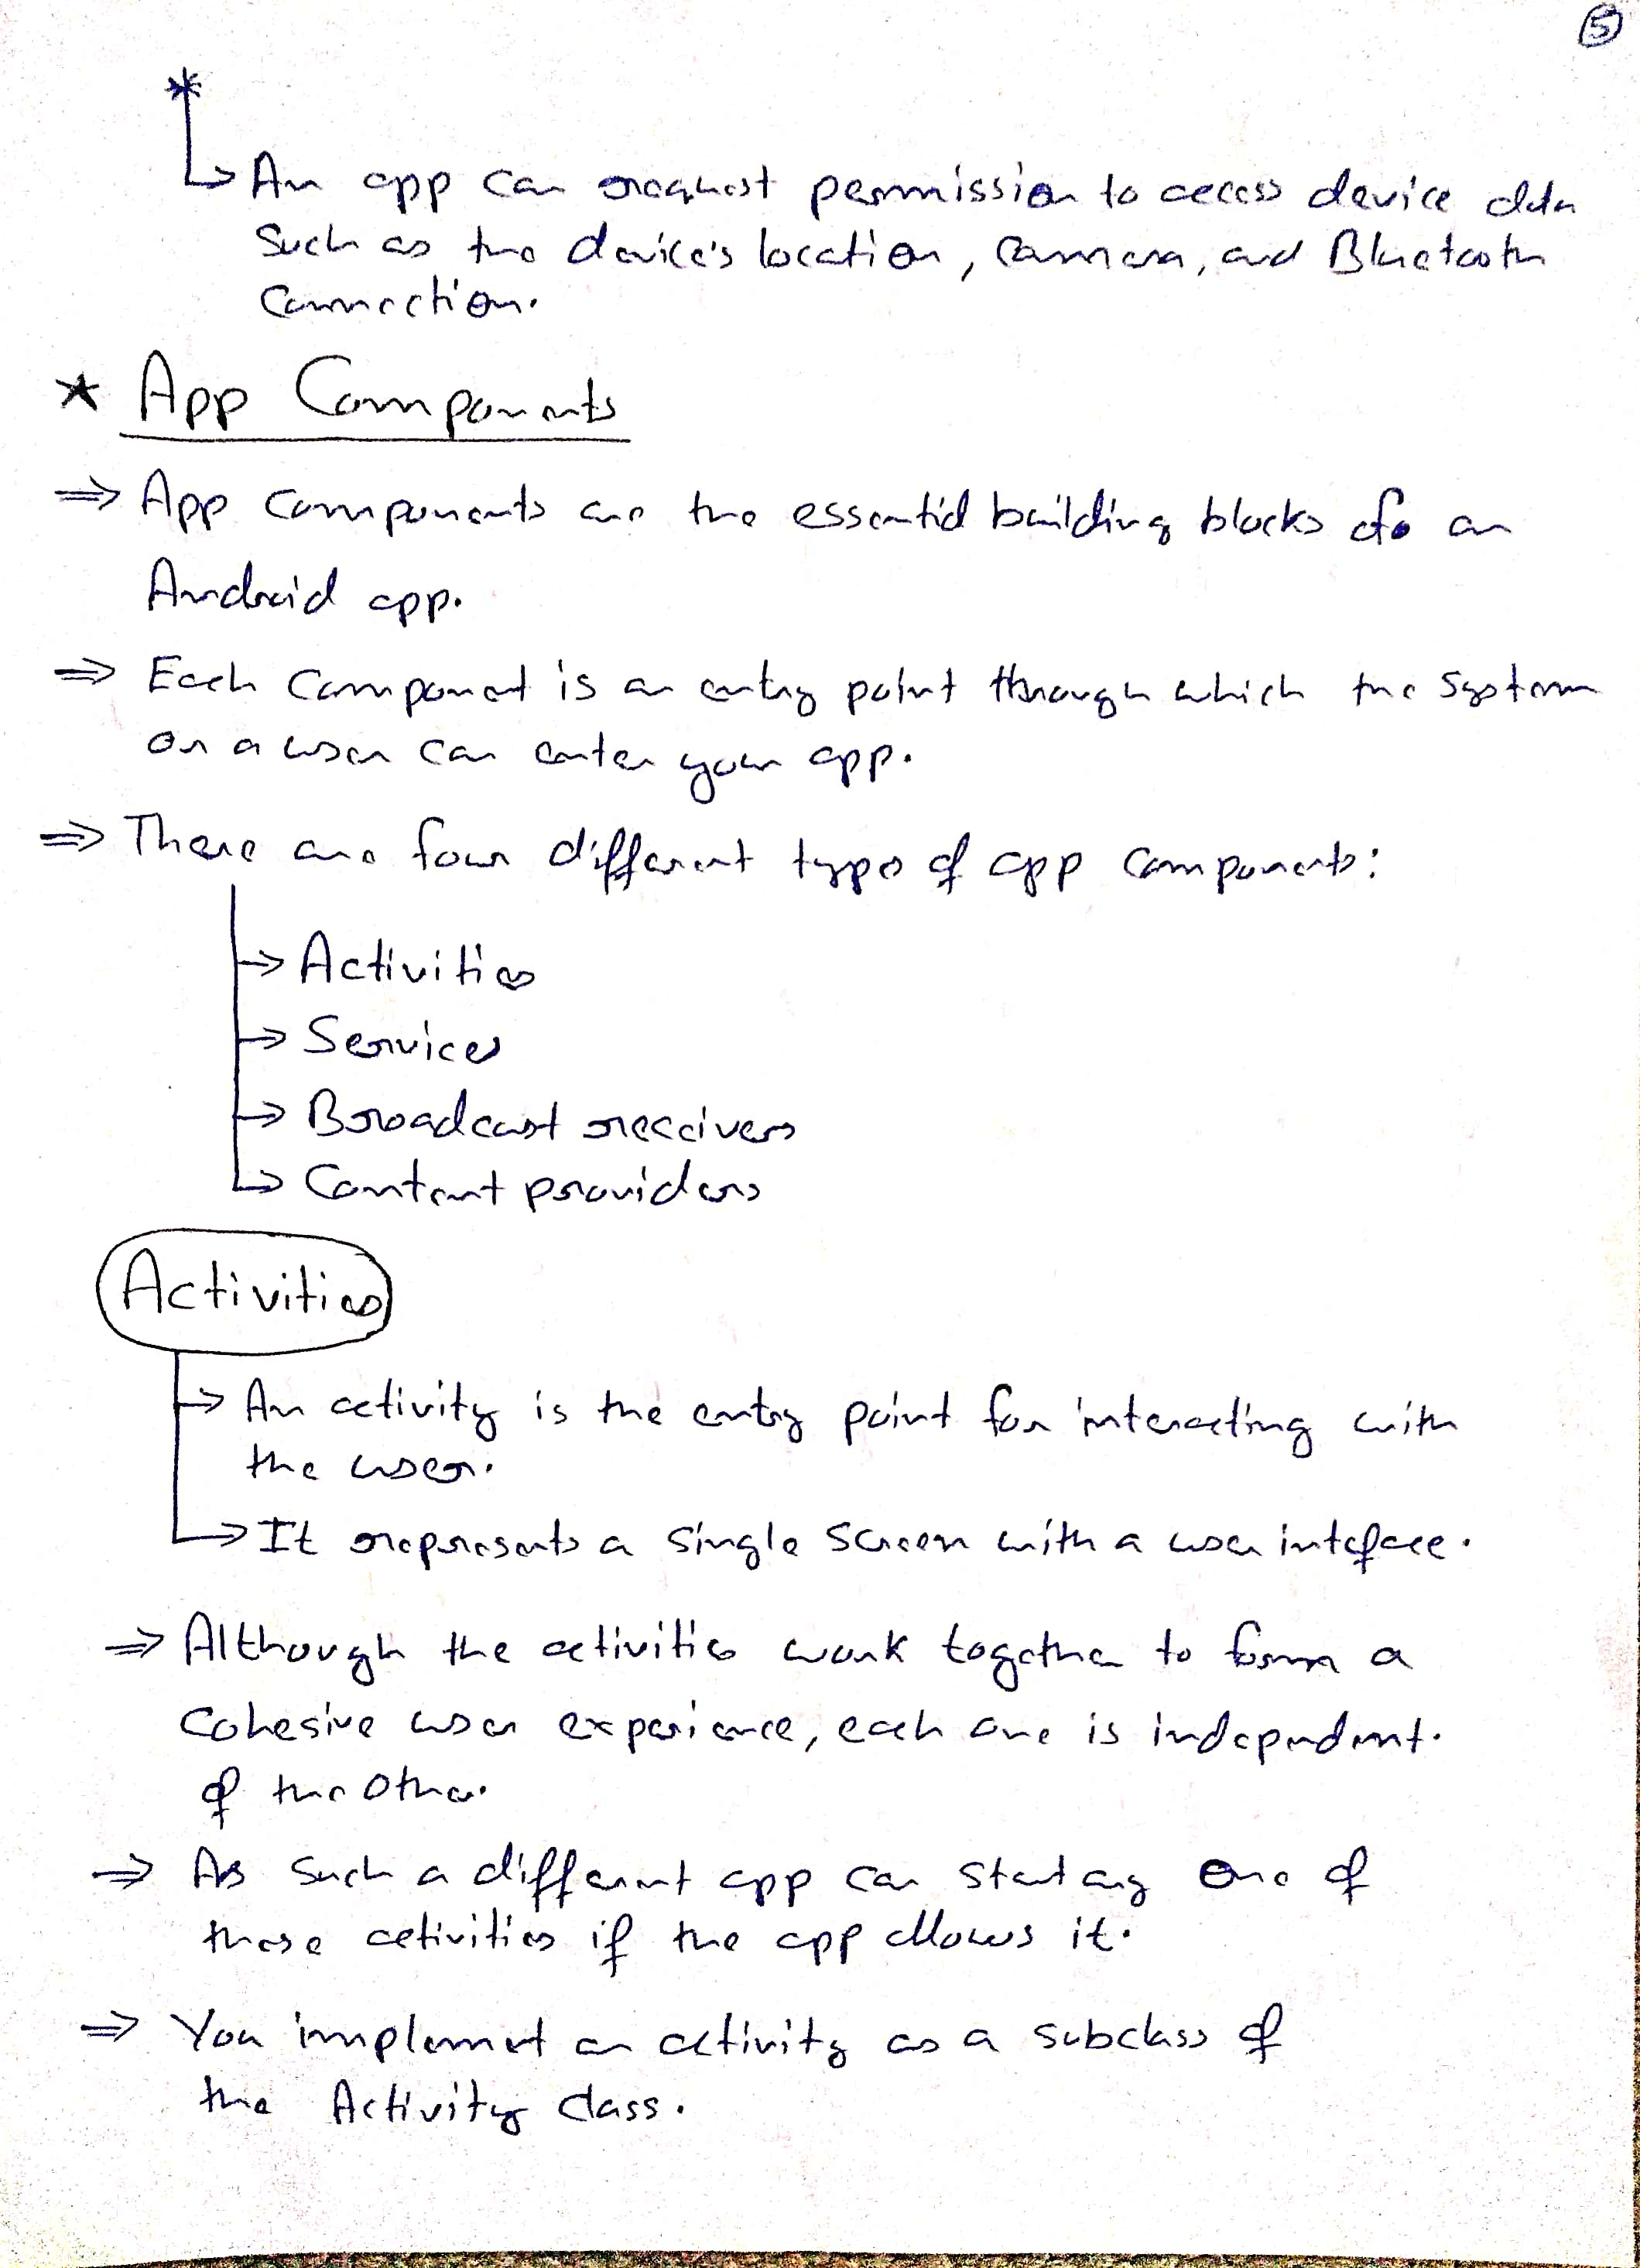 5
*
↳ An app can request permission to access device data
Such as the device's location, Camera, and Bluetooth
Connection.
* App Components
⇒ App components are the essential building blocks of an
Android app.
⇒ Each component is an entry point through which the system
or a user can enter your app.
⇒ There are four different types of app components:
→ Activities
→ Services
→ Broadcast receivers
↳ Content providers
Activities
→ An activity is the entry point for interacting with
the user.
↳ It represents a single screen with a user inteface.
⇒ Although the activities work together to form a
Cohesive user experience, each one is independent.
of the other.
⇒ As such a different app can start any one of
these activities if the app allows it.
⇒ You implement an activity as a subclass of
the Activity class.